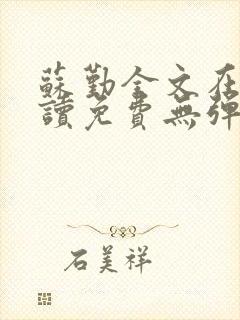 蘇勤全文在
讀免費無彈
石美祥